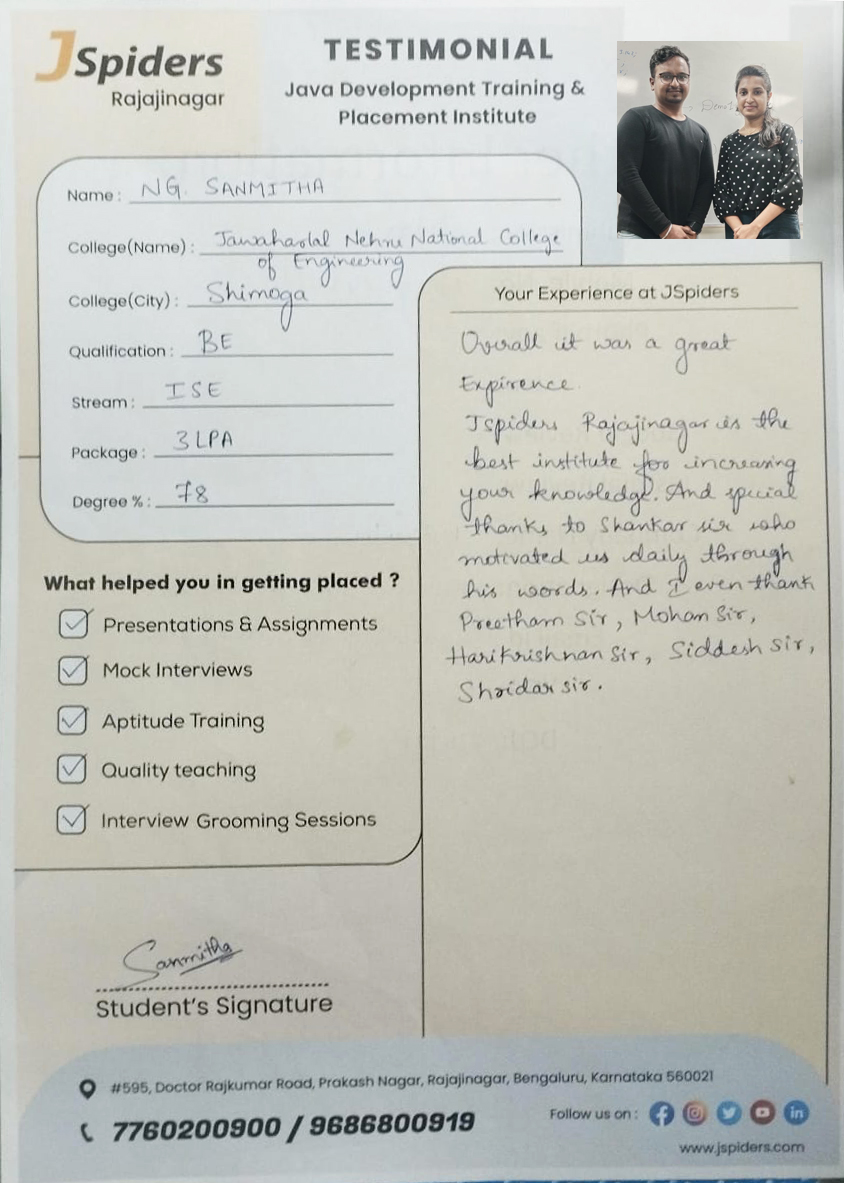 JSpiders
Rajajinagar
TESTIMONIAL
Java Development Training &
Placement Institute
Name : NG. SANMITHA
College(Name) : Jawaharlal Nehru National College
of Engineering
College(City) : Shimoga
Qualification : BE
Stream : ISE
Package : 3LPA
Degree % : 78
What helped you in getting placed ?
Presentations & Assignments
Mock Interviews
Aptitude Training
Quality teaching
Interview Grooming Sessions
Your Experience at JSpiders
Overall it was a great
Expirence.
Jspiders Rajajinagar is the
best institute for increasing
your knowledge. And special
thanks to Shankar sir who
motivated us daily through
his words. And I even thank
Preetham Sir, Mohan Sir,
Harikrishnan Sir, Siddesh Sir,
Shridar sir.
Sanmitha
Student's Signature
#595, Doctor Rajkumar Road, Prakash Nagar, Rajajinagar, Bengaluru, Karnataka 560021
7760200900 / 9686800919
Follow us on :
www.jspiders.com